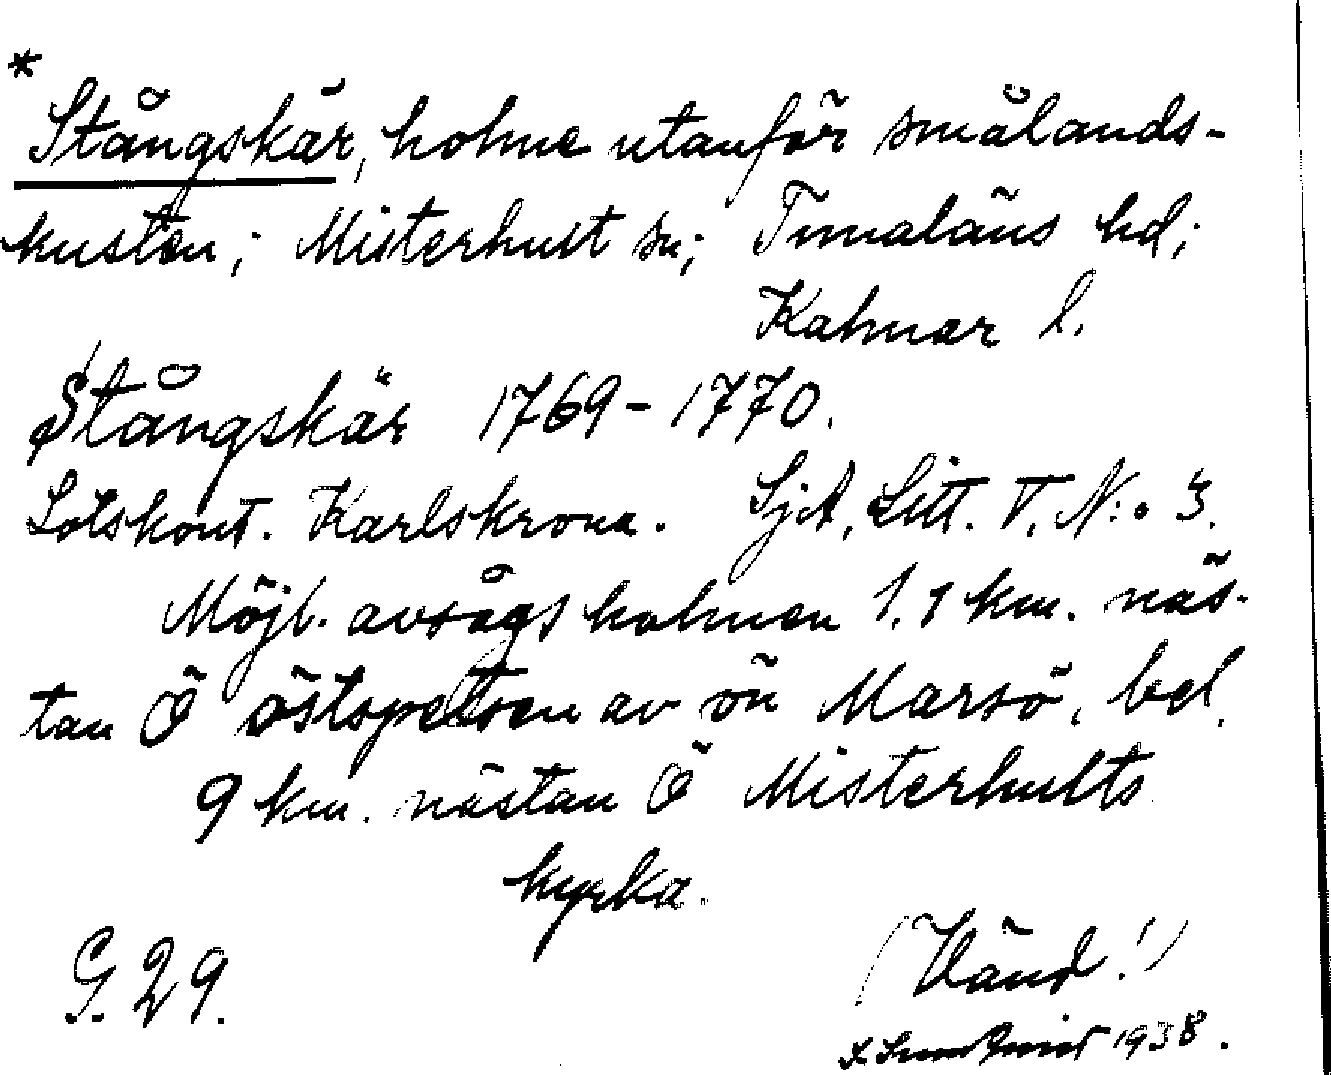 *
Stångskär, holme utanför smålands-
kusten; Misterhult sn; Tunaläns hd;
Kalmar l.
Stångskär 1769-1770.
Lotskont. Karlskrona. SjA, Litt. T, N:o 3.
Möjl. avsågs holmen 1.1 km. näs-
tan Ö östspetsen av ön Marsö, bel.
9 km. nästan Ö Misterhults
kyrka.
G. 29.
(Vänd!)
1938.